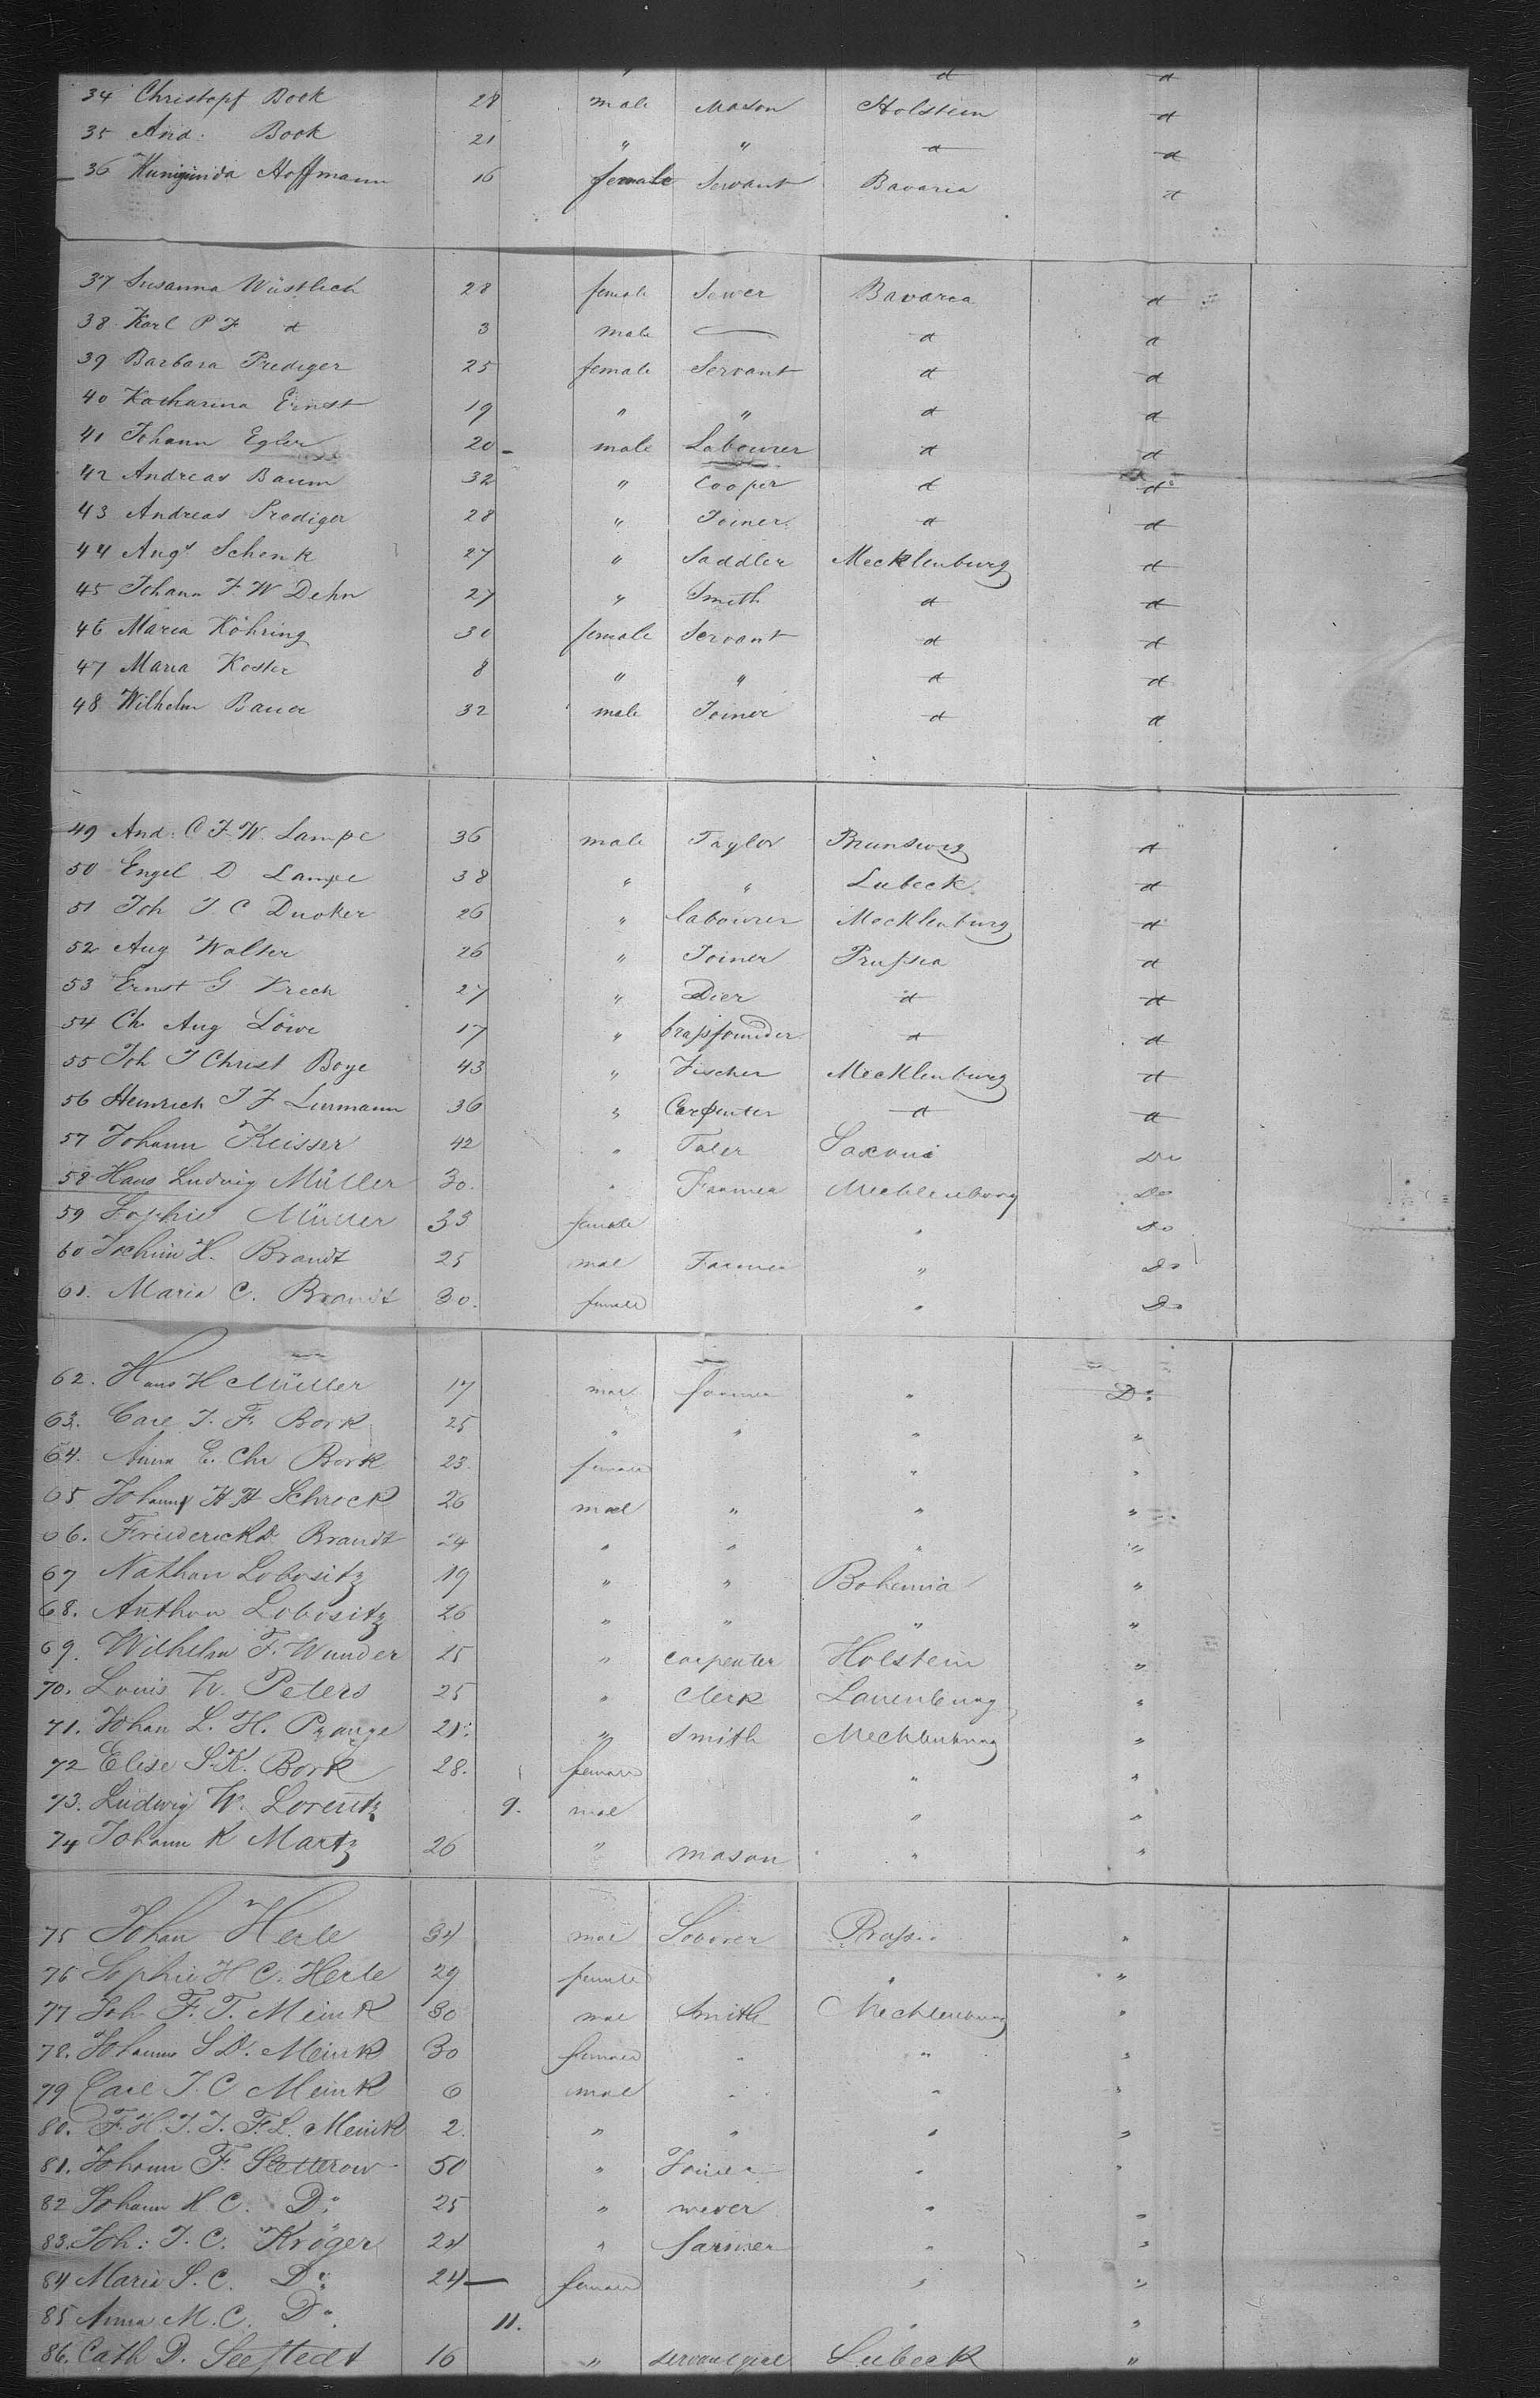 34 Christopf Bock 28 male Mason Holstein d
35 And. Bock 21 " " d d
36 Kunigunda Hoffmann 16 female Servant Bavaria d
37 Susanna Wüstlich 28 female Sewer Bavaria d
38 Karl P F d 3 male — d d
39 Barbara Prediger 25 female Servant d d
40 Katharina Ernst 19 " " d d
41 Johann Egler 20 male Labourer d d
42 Andreas Baum 32 " Cooper d d
43 Andreas Prediger 28 " Joiner d d
44 Augs Schenk 27 " Saddler Mecklenburg d
45 Johann F W Dehn 27 " Smith d d
46 Maria Köhring 30 female Servant d d
47 Maria Koster 8 " " d d
48 Wilhelm Bauer 32 male Joiner d d
49 And. C F W. Lampe 36 male Taylor Brunswig d
50 Engel D Lampe 38 " " Lubeck d
51 Joh J C Ducker 26 " labourer Mecklenburg d
52 Aug Walter 26 " Joiner Prussia d
53 Ernst G Krech 27 " Dier d d
54 Ch. Aug Löwe 17 " brassfounder d d
55 Joh J Christ Boye 43 " Fischer Mecklenburg d
56 Heinrich J F Lurmann 36 " Carpenter d d
57 Johann Keisser 42 " Saxoni Do
58 Hans Ludwig Müller 30. " Farmer Mechlenburg Do
59 Sophie Müller 35 female " Do
60 Jochim H. Brandt 25 mal Farmer " Do
61. Maria C. Brandt 30. female " Do
62. Hans H Müller 17 mal farmer " Do
63. Carl J. F. Bork 25 " " " "
64. Anna E. Chr Bork 23. female " "
65 Johann H H Schrock 26 mal " " "
66. Friederick D. Brandt 24 " " " "
67 Nathan Lobositz 19 " " Bohemia "
68. Anthon Lobositz 26 " " " "
69. Wilhelm F. Wunder 25 " carpenter Holstein "
70. Louis W. Peters 25 " Clerk Lauenburg "
71. Johan L. H. Prange 21. " Smith Mechlenburg "
72 Elise S. K. Bork 28. female " "
73. Ludwig W. Lorentz 9. mal " "
74 Johann K Martz 26 " mason " "
75 Johan Herle 34 mal Prussia "
76 Sophie H C. Herle 29 female " "
77 Joh F. T. Meink 30 mal Smith Mechlenburg "
78. Johanna S D. Meink 30 female " " "
79 Carl J. C Meink 6 mal " " "
80. F. H. J. J. F. L. Meink 2. " " " "
81. Johann F. Stetterow 50 " Joiner " "
82 Johann H. C. Do 25 " wever " "
83. Joh: J. C. Kröger 24 " farmer " "
84 Maria S. C. Do 24 female " "
85 Anna M. C. Do 11. " "
86. Cath D. Seestedt 16 " servant girl Lübeck "